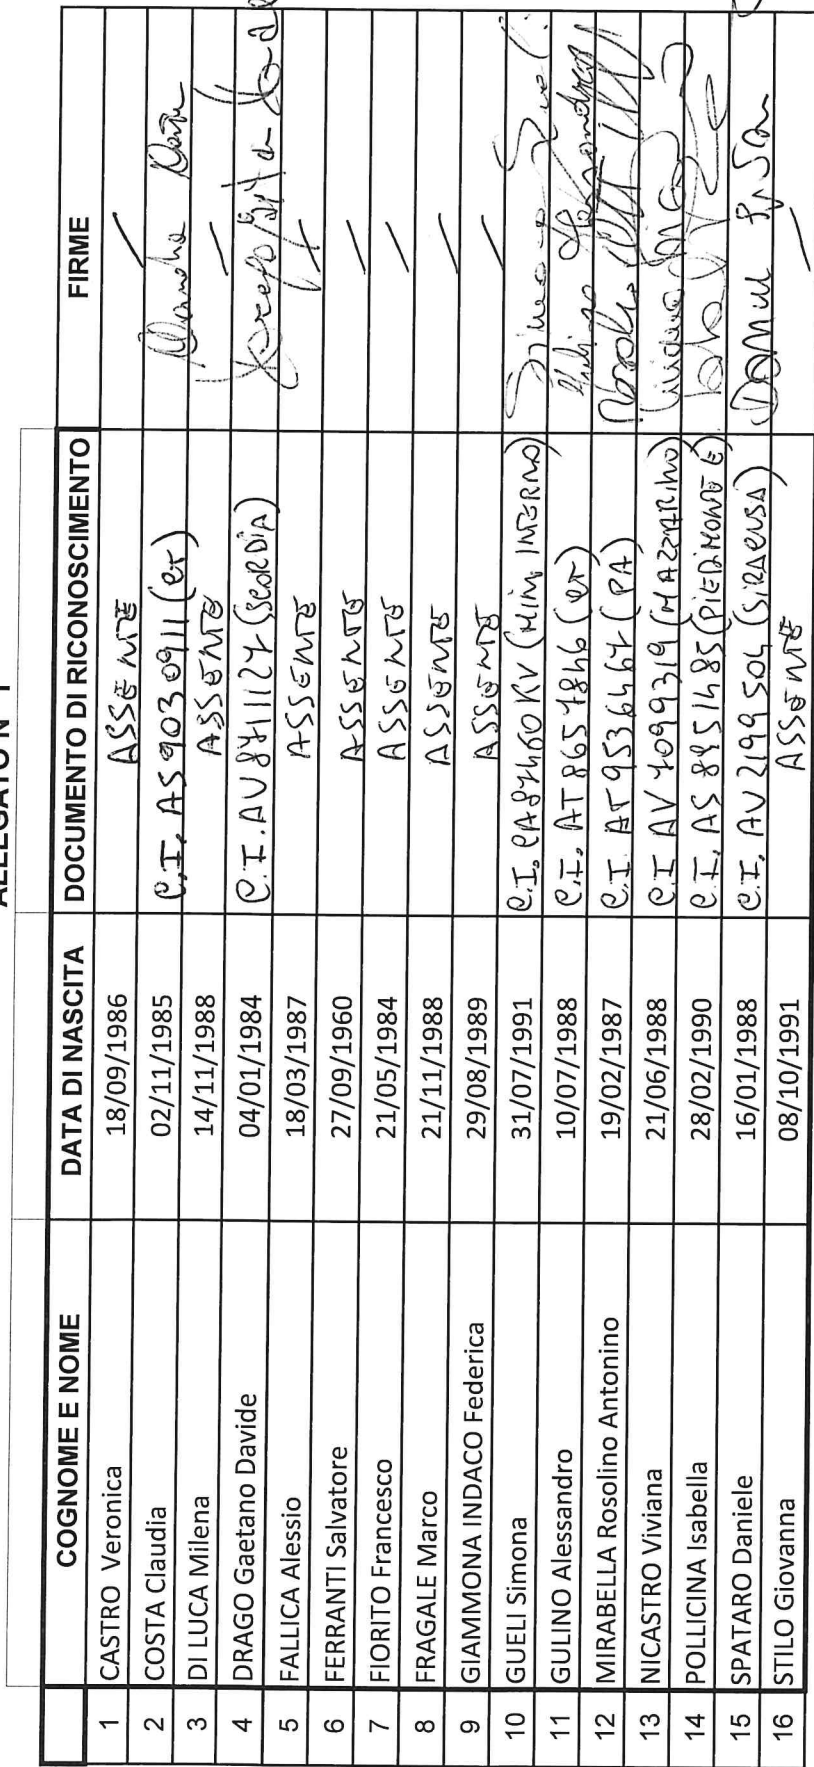 ALLEGATO N 1
COGNOME E NOME DATA DI NASCITA DOCUMENTO DI RICONOSCIMENTO FIRME
1 CASTRO Veronica 18/09/1986 ASSENTE /
2 COSTA Claudia 02/11/1985 C.I. AS9030911 (CT)
3 DI LUCA Milena 14/11/1988 ASSENTE /
4 DRAGO Gaetano Davide 04/01/1984 C.I. AV8711127 (SCORDIA)
5 FALLICA Alessio 18/03/1987 ASSENTE /
6 FERRANTI Salvatore 27/09/1960 ASSENTE /
7 FIORITO Francesco 21/05/1984 ASSENTE /
8 FRAGALE Marco 21/11/1988 ASSENTE /
9 GIAMMONA INDACO Federica 29/08/1989 ASSENTE /
10 GUELI Simona 31/07/1991 C.I. CA87460KV (MIN. INTERNO) Simona Gueli
11 GULINO Alessandro 10/07/1988 C.I. AT8657846 (CT) Gulino Alessandro
12 MIRABELLA Rosolino Antonino 19/02/1987 C.I. AT9536467 (PA)
13 NICASTRO Viviana 21/06/1988 C.I AV7099319 (MAZZARINO)
14 POLLICINA Isabella 28/02/1990 C.I. AS8951485 (PIEDIMONTE E)
15 SPATARO Daniele 16/01/1988 C.I. AV2199504 (SIRACUSA)
16 STILO Giovanna 08/10/1991 ASSENTE /